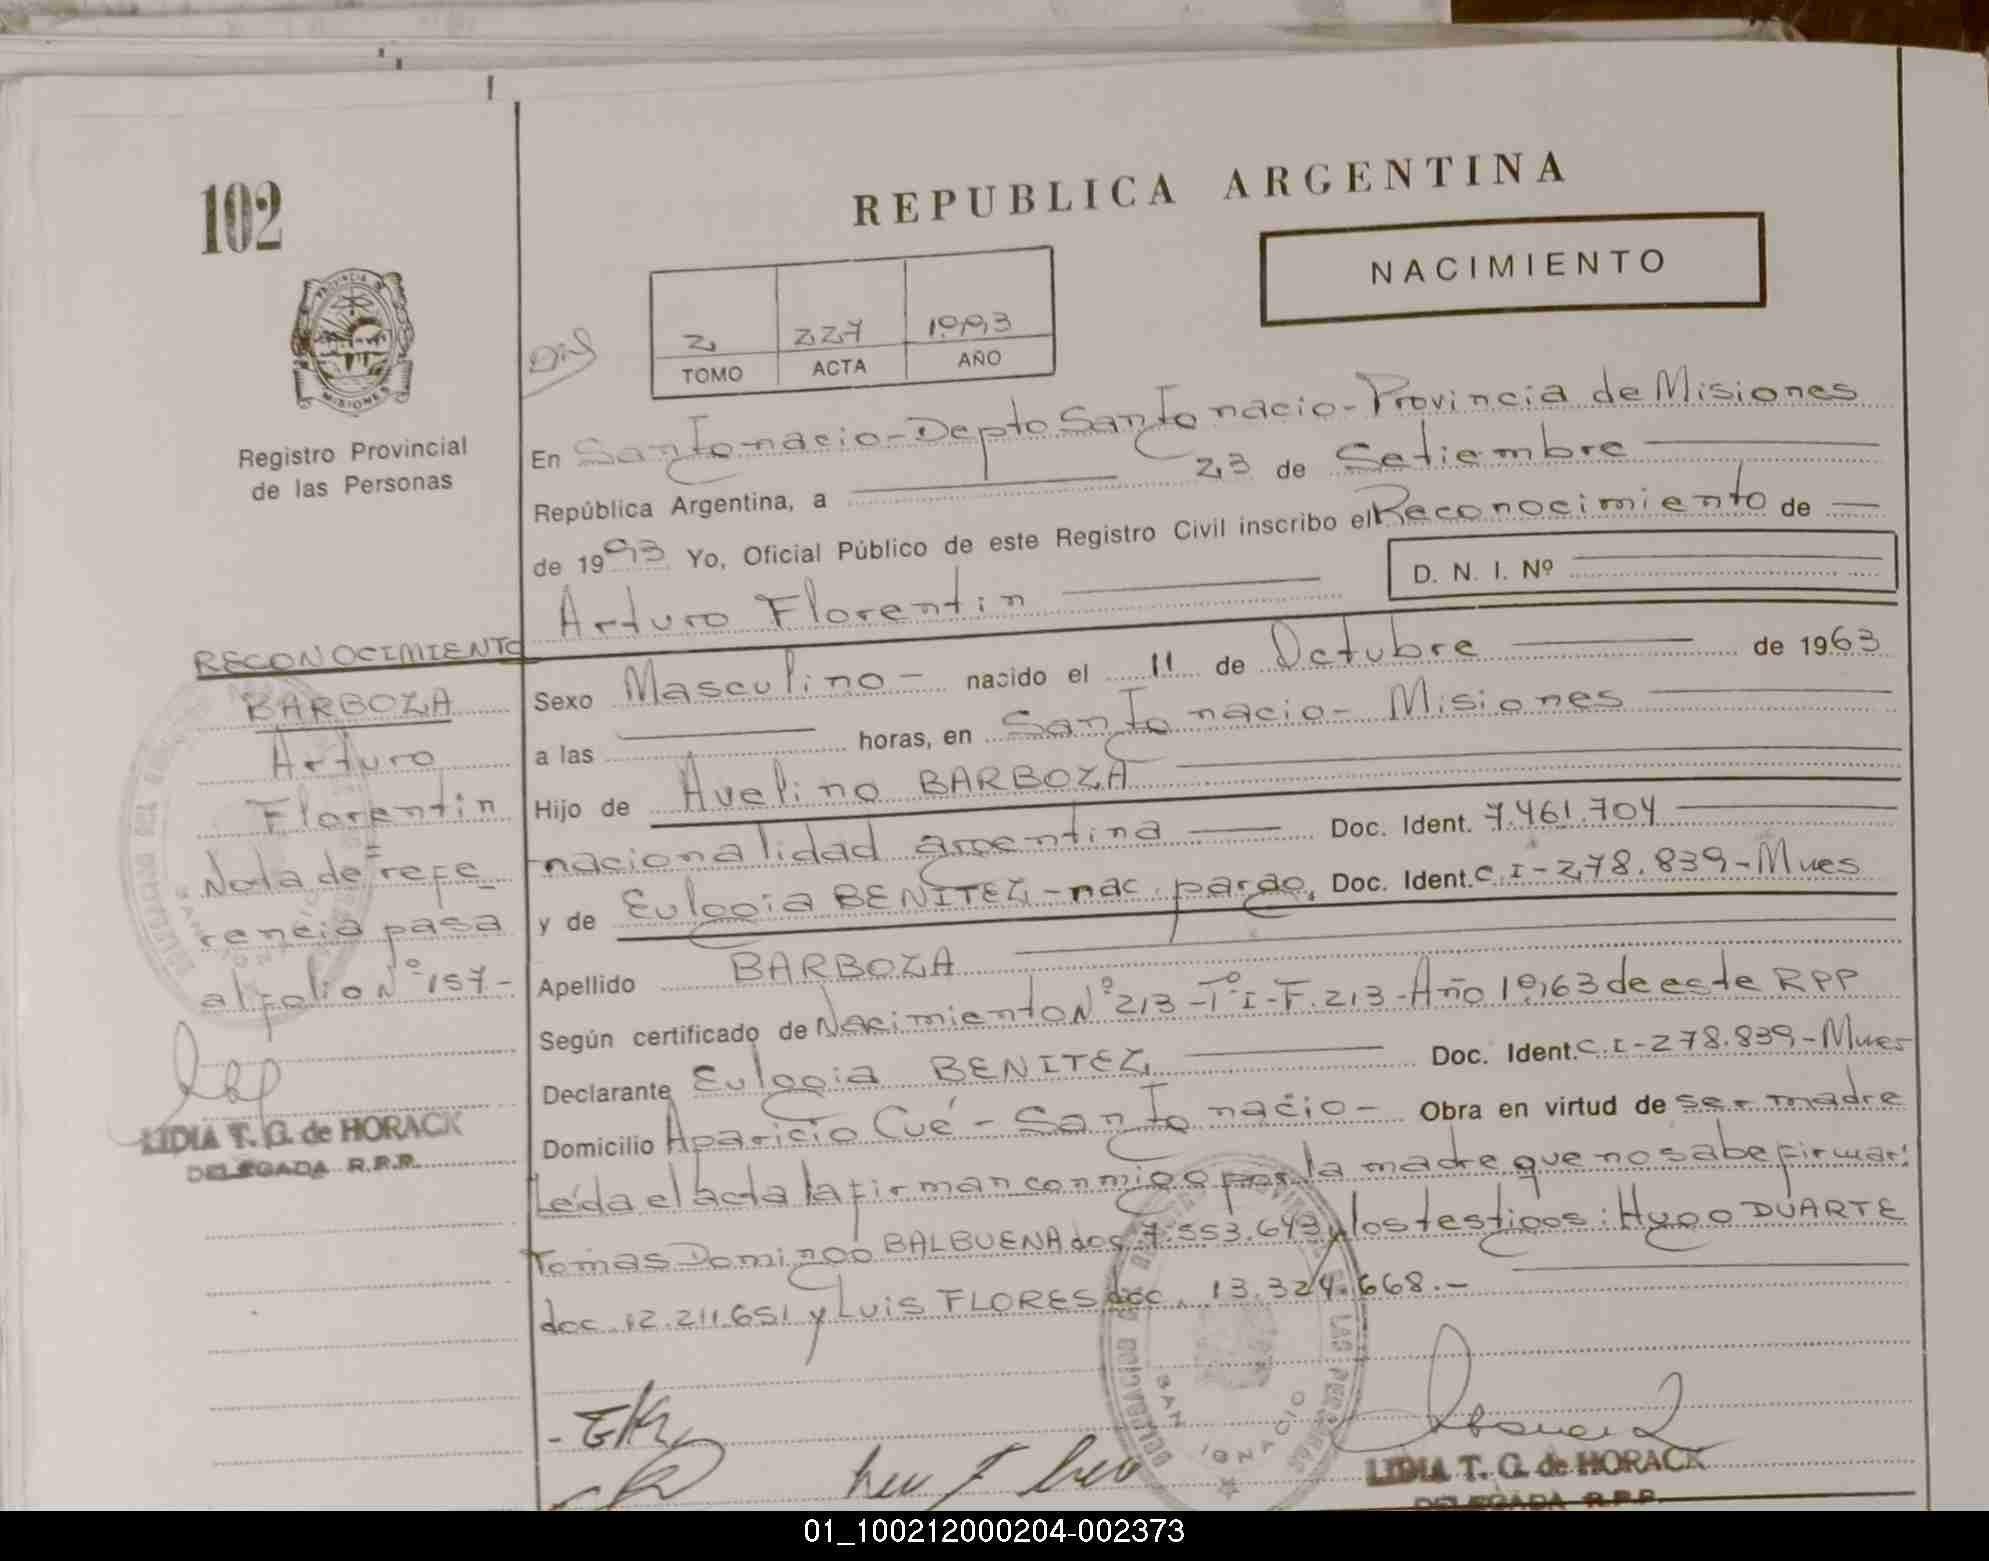 102
REPUBLICA ARGENTINA
NACIMIENTO
2 227 1993
TOMO ACTA AÑO
PROVINCIA DE
MISIONES
Registro Provincial
de las Personas
En San Ignacio - Depto San Ignacio - Provincia de Misiones
República Argentina, a 23 de Setiembre
de 1993 Yo, Oficial Público de este Registro Civil inscribo el Reconocimiento de
D. N. I. Nº
Arturo Florentin
Sexo Masculino - nacido el 11 de Octubre de 1963
a las horas, en San Ignacio - Misiones
Hijo de Avelino BARBOZA
nacionalidad argentina Doc. Ident. 7.461.704
y de Eulogia BENITEZ - nac. parag. Doc. Ident. C.I - 278.839 - Mnes
Apellido BARBOZA
Según certificado de Nacimiento Nº 213 - Tº I - F. 213 - Año 1963 de este RPP
Declarante Eulogia BENITEZ Doc. Ident. C.I - 278.839 - Mnes
Domicilio Aparicio Cué - San Ignacio - Obra en virtud de ser madre
Leída el acta la firman conmigo por la madre que no sabe firmar:
Tomas Domingo BALBUENA doc. 7.553.643 y los testigos: Hugo DUARTE
doc. 12.211.651 y Luis FLORES doc. 13.324.668.-
RECONOCIMIENTO
BARBOZA
Arturo
Florentin
Nota de refe
rencia pasa
al folio Nº 157 -
LIDIA T. G. de HORACK
DELEGADA R.P.P.
SAN IGNACIO
LIDIA T. G. de HORACK
DELEGADA R.P.P.
01_100212000204-002373